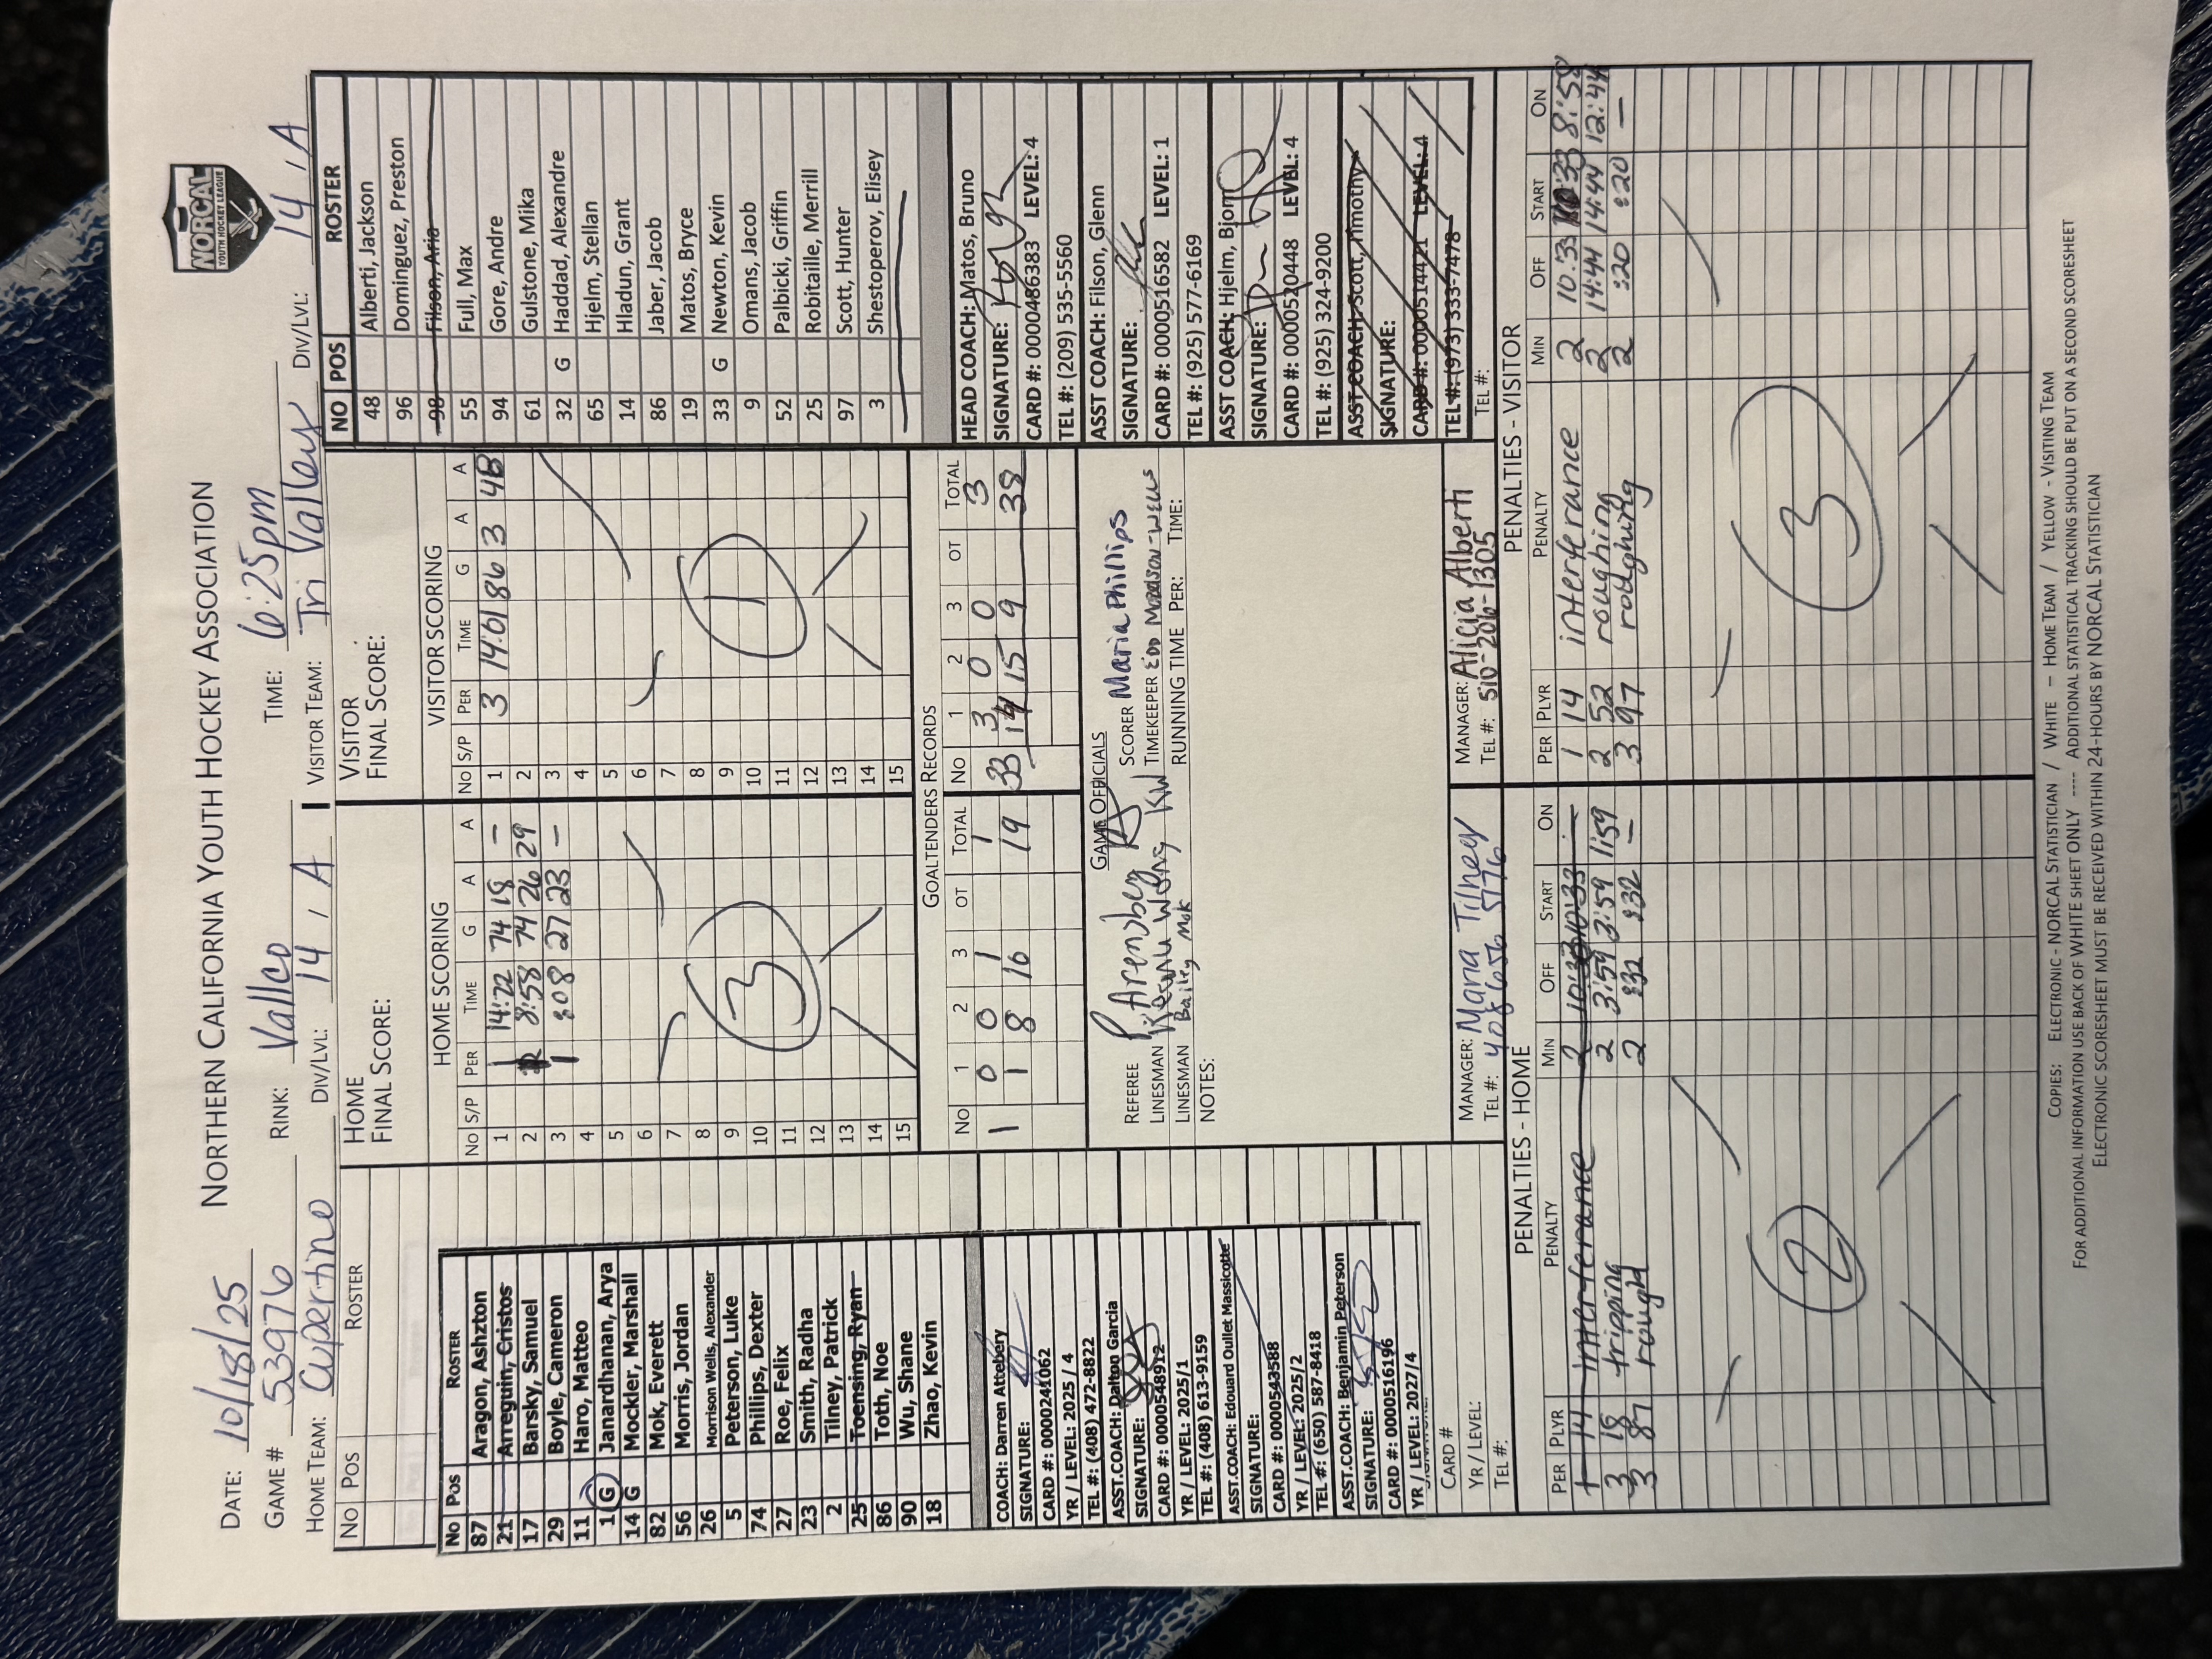 NORCAL
YOUTH HOCKEY LEAGUE
NORTHERN CALIFORNIA YOUTH HOCKEY ASSOCIATION
DATE: 10/18/25
GAME # 53976 RINK: Vallco TIME: 6:25pm
HOME TEAM: Cupertino DIV/LVL: 14 / A VISITOR TEAM: Tri Valley DIV/LVL: 14 / A
NO POS ROSTER
HOME
FINAL SCORE:
VISITOR
FINAL SCORE:
No Pos ROSTER
87 Aragon, Ashzton
21 Arreguin, Cristos
17 Barsky, Samuel
29 Boyle, Cameron
11 Haro, Matteo
1 G Janardhanan, Arya
14 G Mockler, Marshall
82 Mok, Everett
56 Morris, Jordan
26 Morrison Wells, Alexander
5 Peterson, Luke
74 Phillips, Dexter
27 Roe, Felix
23 Smith, Radha
2 Tilney, Patrick
25 Toensing, Ryan
86 Toth, Noe
90 Wu, Shane
18 Zhao, Kevin
COACH: Darren Attebery
SIGNATURE:
CARD #: 0000241062
YR / LEVEL: 2025 / 4
TEL #: (408) 472-8822
ASST.COACH: Dalton Garcia
SIGNATURE:
CARD #: 0000548912
YR / LEVEL: 2025/1
TEL #: (408) 613-9159
ASST.COACH: Edouard Oullet Massicotte
SIGNATURE:
CARD #: 0000543588
YR / LEVEL: 2025/2
TEL #: (650) 587-8418
ASST.COACH: Benjamin Peterson
SIGNATURE:
CARD #: 0000516196
YR / LEVEL: 2027/4
CARD #
YR / LEVEL:
TEL #:
HOME SCORING
NO S/P PER TIME G A A
1 1 14:22 74 18 –
2 1 8:58 74 26 29
3 1 :08 27 23 –
4
5
6
7
8
9
10
11
12
13
14
15
3
VISITOR SCORING
NO S/P PER TIME G A A
1 3 14:01 86 3 48
2
3
4
5
6
7
8
9
10
11
12
13
14
15
1
GOALTENDERS RECORDS
NO 1 2 3 OT TOTAL NO 1 2 3 OT TOTAL
1 0 0 1 1 33 3 0 0 3
1 8 10 19 14 15 9 38
GAME OFFICIALS
REFEREE P. Arrenberg SCORER Maria Phillips
LINESMAN Kevin Wong KW TIMEKEEPER
LINESMAN Bailey Mok RUNNING TIME PER: TIME:
NOTES:
MANAGER: Maria Tilney
TEL #: 408 656 5176
MANAGER: Alicia Alberti
TEL #: 510-206-1305
NO POS ROSTER
48 Alberti, Jackson
96 Dominguez, Preston
98 Filson, Aria
55 Full, Max
94 Gore, Andre
61 Gulstone, Mika
32 G Haddad, Alexandre
65 Hjelm, Stellan
14 Hladun, Grant
86 Jaber, Jacob
19 Matos, Bryce
33 G Newton, Kevin
9 Omans, Jacob
52 Palbicki, Griffin
25 Robitaille, Merrill
97 Scott, Hunter
3 Shestoperov, Elisey
HEAD COACH: Matos, Bruno
SIGNATURE:
CARD #: 0000486383 LEVEL: 4
TEL #: (209) 535-5560
ASST COACH: Filson, Glenn
SIGNATURE:
CARD #: 0000516582 LEVEL: 1
TEL #: (925) 577-6169
ASST COACH: Hjelm, Bjorn
SIGNATURE:
CARD #: 0000520448 LEVEL: 4
TEL #: (925) 324-9200
ASST COACH: Scott, Timothy
SIGNATURE:
CARD #: 0000514421 LEVEL: 4
TEL #: (973) 333-7478
TEL #:
PENALTIES - HOME
PER PLYR PENALTY MIN OFF START ON
1 14 interferance 2 10:33 10:33 –
3 18 tripping 2 3:59 3:59 1:59
3 87 rough 2 :32 :32 –
2
PENALTIES - VISITOR
PER PLYR PENALTY MIN OFF START ON
1 14 interferance 2 10:33 10:33 8:58
2 52 roughing 2 14:44 14:44 12:44
3 97 roughing 2 :20 :20 –
3
COPIES: ELECTRONIC - NORCAL STATISTICIAN / WHITE – HOME TEAM / YELLOW - VISITING TEAM
FOR ADDITIONAL INFORMATION USE BACK OF WHITE SHEET ONLY ---- ADDITIONAL STATISTICAL TRACKING SHOULD BE PUT ON A SECOND SCORESHEET
ELECTRONIC SCORESHEET MUST BE RECEIVED WITHIN 24-HOURS BY NORCAL STATISTICIAN